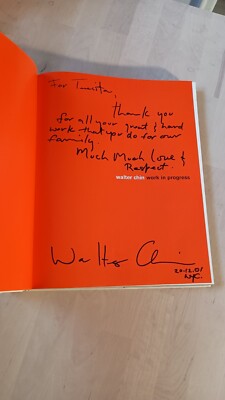 For
thank you
for all your great & hard
work that you do for our
family.
Much Much Love &
Respect.
walter chin work in progress
Walter Chin
20.12.01
NYC.